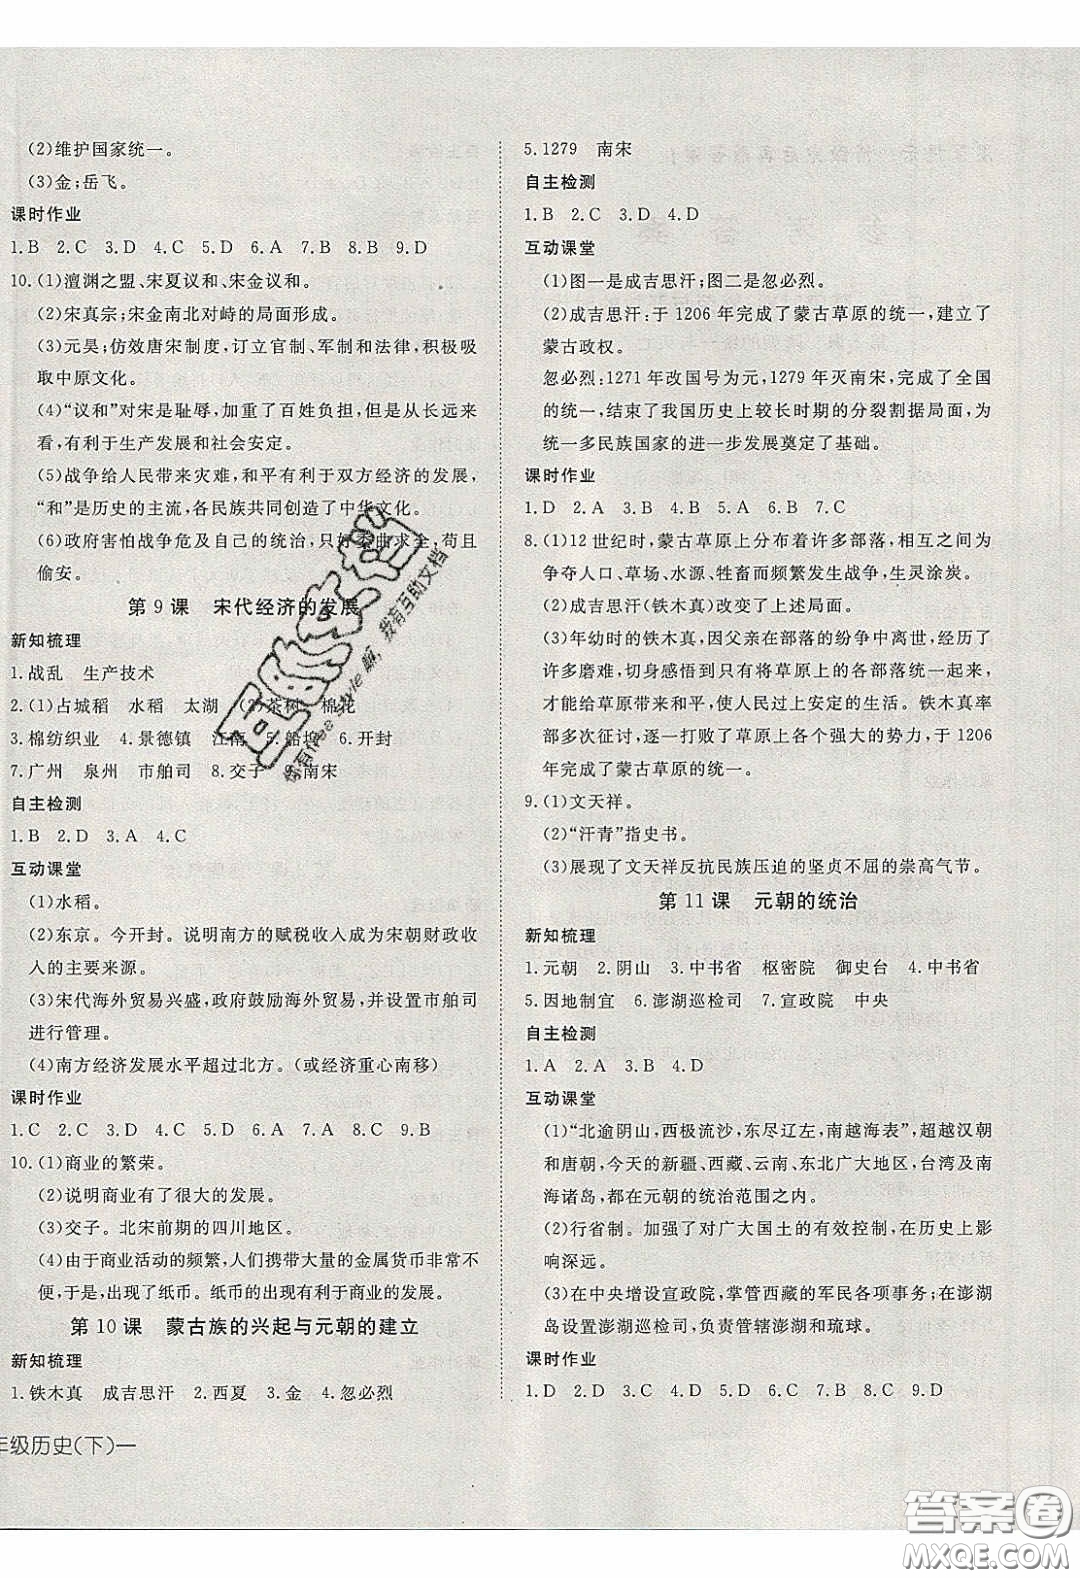 (2)维护国家统一。
(3)金;岳飞。
课时作业
1.B 2.C 3.D 4.C 5.D 6.A 7.B 8.B 9.D
10.(1)澶渊之盟、宋夏议和、宋金议和。
(2)宋真宗;宋金南北对峙的局面形成。
(3)元昊;仿效唐宋制度,订立官制、军制和法律,积极吸
取中原文化。
(4)“议和”对宋是耻辱,加重了百姓负担,但从长远来
看,有利于生产发展和社会安定。
(5)战争给人民带来灾难,和平有利于双方经济的发展,
“和”是历史的主流,各民族共同创造了中华文化。
(6)政府害怕战争危及自己的统治,只好委曲求全,苟且
偷安。
第 9 课 宋代经济的发展
新知梳理
1.战乱 生产技术
2.(1)占城稻 水稻 太湖 (2)茶树 棉花
3.棉纺织业 4.景德镇 江南 5.船坞 6.开封
7.广州 泉州 市舶司 8.交子 9.南宋
自主检测
1.B 2.D 3.A 4.C
互动课堂
(1)水稻。
(2)东京。今开封。说明南方的赋税收入成为宋朝财政收
入的主要来源。
(3)宋代海外贸易兴盛,政府鼓励海外贸易,并设置市舶司
进行管理。
(4)南方经济发展水平超过北方。(或经济重心南移)
课时作业
1.C 2.C 3.D 4.B 5.A 6.A 7.B 8.C 9.B
10.(1)商业的繁荣。
(2)说明商业有了很大的发展。
(3)交子。北宋前期的四川地区。
(4)由于商业活动的频繁,人们携带大量的金属货币非常不
便,于是出现了纸币。纸币的出现有利于商业的发展。
第 10 课 蒙古族的兴起与元朝的建立
新知梳理
1.铁木真 成吉思汗 2.西夏 3.金 4.忽必烈
年级历史(下)一
5.1279 南宋
自主检测
1.B 2.C 3.D 4.D
互动课堂
(1)图一是成吉思汗;图二是忽必烈。
(2)成吉思汗:于 1206 年完成了蒙古草原的统一,建立了
蒙古政权。
忽必烈:1271 年改国号为元,1279 年灭南宋,完成了全国
的统一,结束了我国历史上较长时期的分裂割据局面,为
统一多民族国家的进一步发展奠定了基础。
课时作业
1.D 2.A 3.B 4.A 5.B 6.B 7.C
8.(1)12 世纪时,蒙古草原上分布着许多部落,相互之间为
争夺人口、草场、水源、牲畜而频繁发生战争,生灵涂炭。
(2)成吉思汗(铁木真)改变了上述局面。
(3)年幼时的铁木真,因父亲在部落的纷争中离世,经历了
许多磨难,切身感悟到只有将草原上的各部落统一起来,
才能给草原带来和平,使人民过上安定的生活。铁木真率
部多次征讨,兼并了草原上各个强大的势力,于 1206
年完成了蒙古草原的统一。
9.(1)文天祥。
(2)“汗青”指史书。
(3)展现了文天祥反抗民族压迫的坚贞不屈的崇高气节。
第 11 课 元朝的统治
新知梳理
1.元朝 2.阴山 3.中书省 枢密院 御史台 4.中书省
5.因地制宜 6.澎湖巡检司 7.宣政院 中央
自主检测
1.A 2.A 3.B 4.D
互动课堂
(1)“北逾阴山,西极流沙,东尽辽左,南越海表”,超越汉朝
和唐朝,今天的新疆、西藏、云南、东北广大地区,台湾及南
海诸岛,都在元朝的统治范围之内。
(2)行省制。加强了对广大国土的有效控制,在历史上影
响深远。
(3)在中央增设宣政院,掌管西藏的军民各项事务;在澎湖
岛设置澎湖巡检司,负责管辖澎湖和琉球。
课时作业
1.D 2.D 3.C 4.A 5.B 6.D 7.B 8.C 9.D
答案卷
MXQE.COM